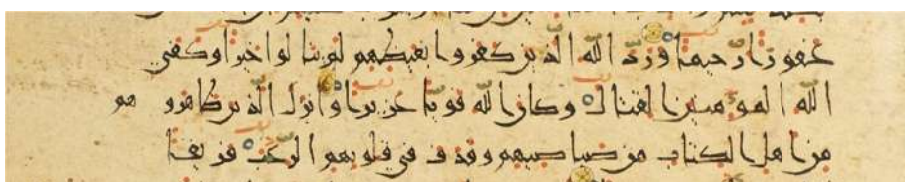 غفورا رحيما ورد الله الذين كفروا بغيظهم لم ينالوا خيرا وكفى
الله المؤمنين القتال وكان الله قويا عزيزا وأنزل الذين ظاهروهم
من أهل الكتاب من صياصيهم وقذف في قلوبهم الرعب فريقا